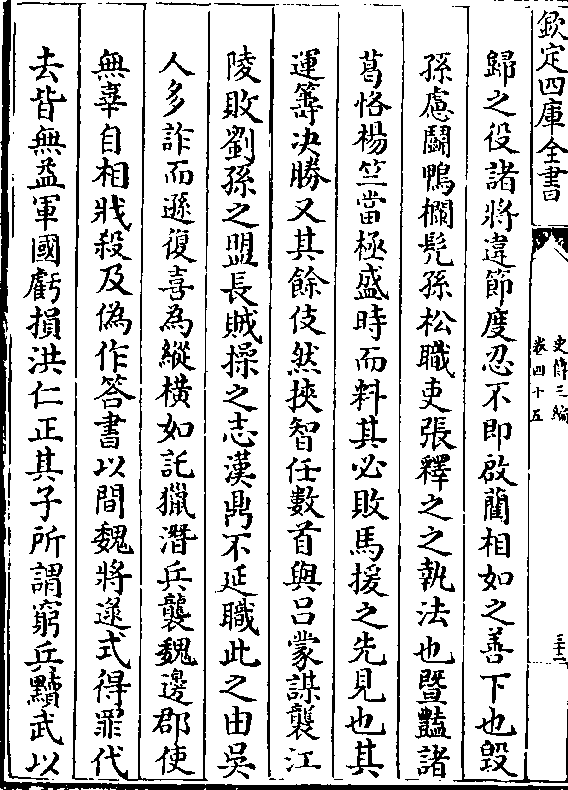 欽定四庫全書
史傳三編
卷四十五
三十二
歸之役諸將違節度忍不即啟藺相如之善下也毀
孫慮鬭鴨欄髠孫松職吏張釋之之執法也曁豔諸
葛恪楊竺當極盛時而料其必敗馬援之先見也其
運籌决勝又其餘伎然挾智任數首與呂蒙謀襲江
陵敗劉孫之盟長賊操之志漢鼎不延職此之由吳
人多詐而遜復喜為縱橫如託獵潛兵襲魏邊郡使
無辜自相戕殺及偽作答書以間魏將逯式得罪代
去皆無益軍國虧損洪仁正其子所謂窮兵黷武以